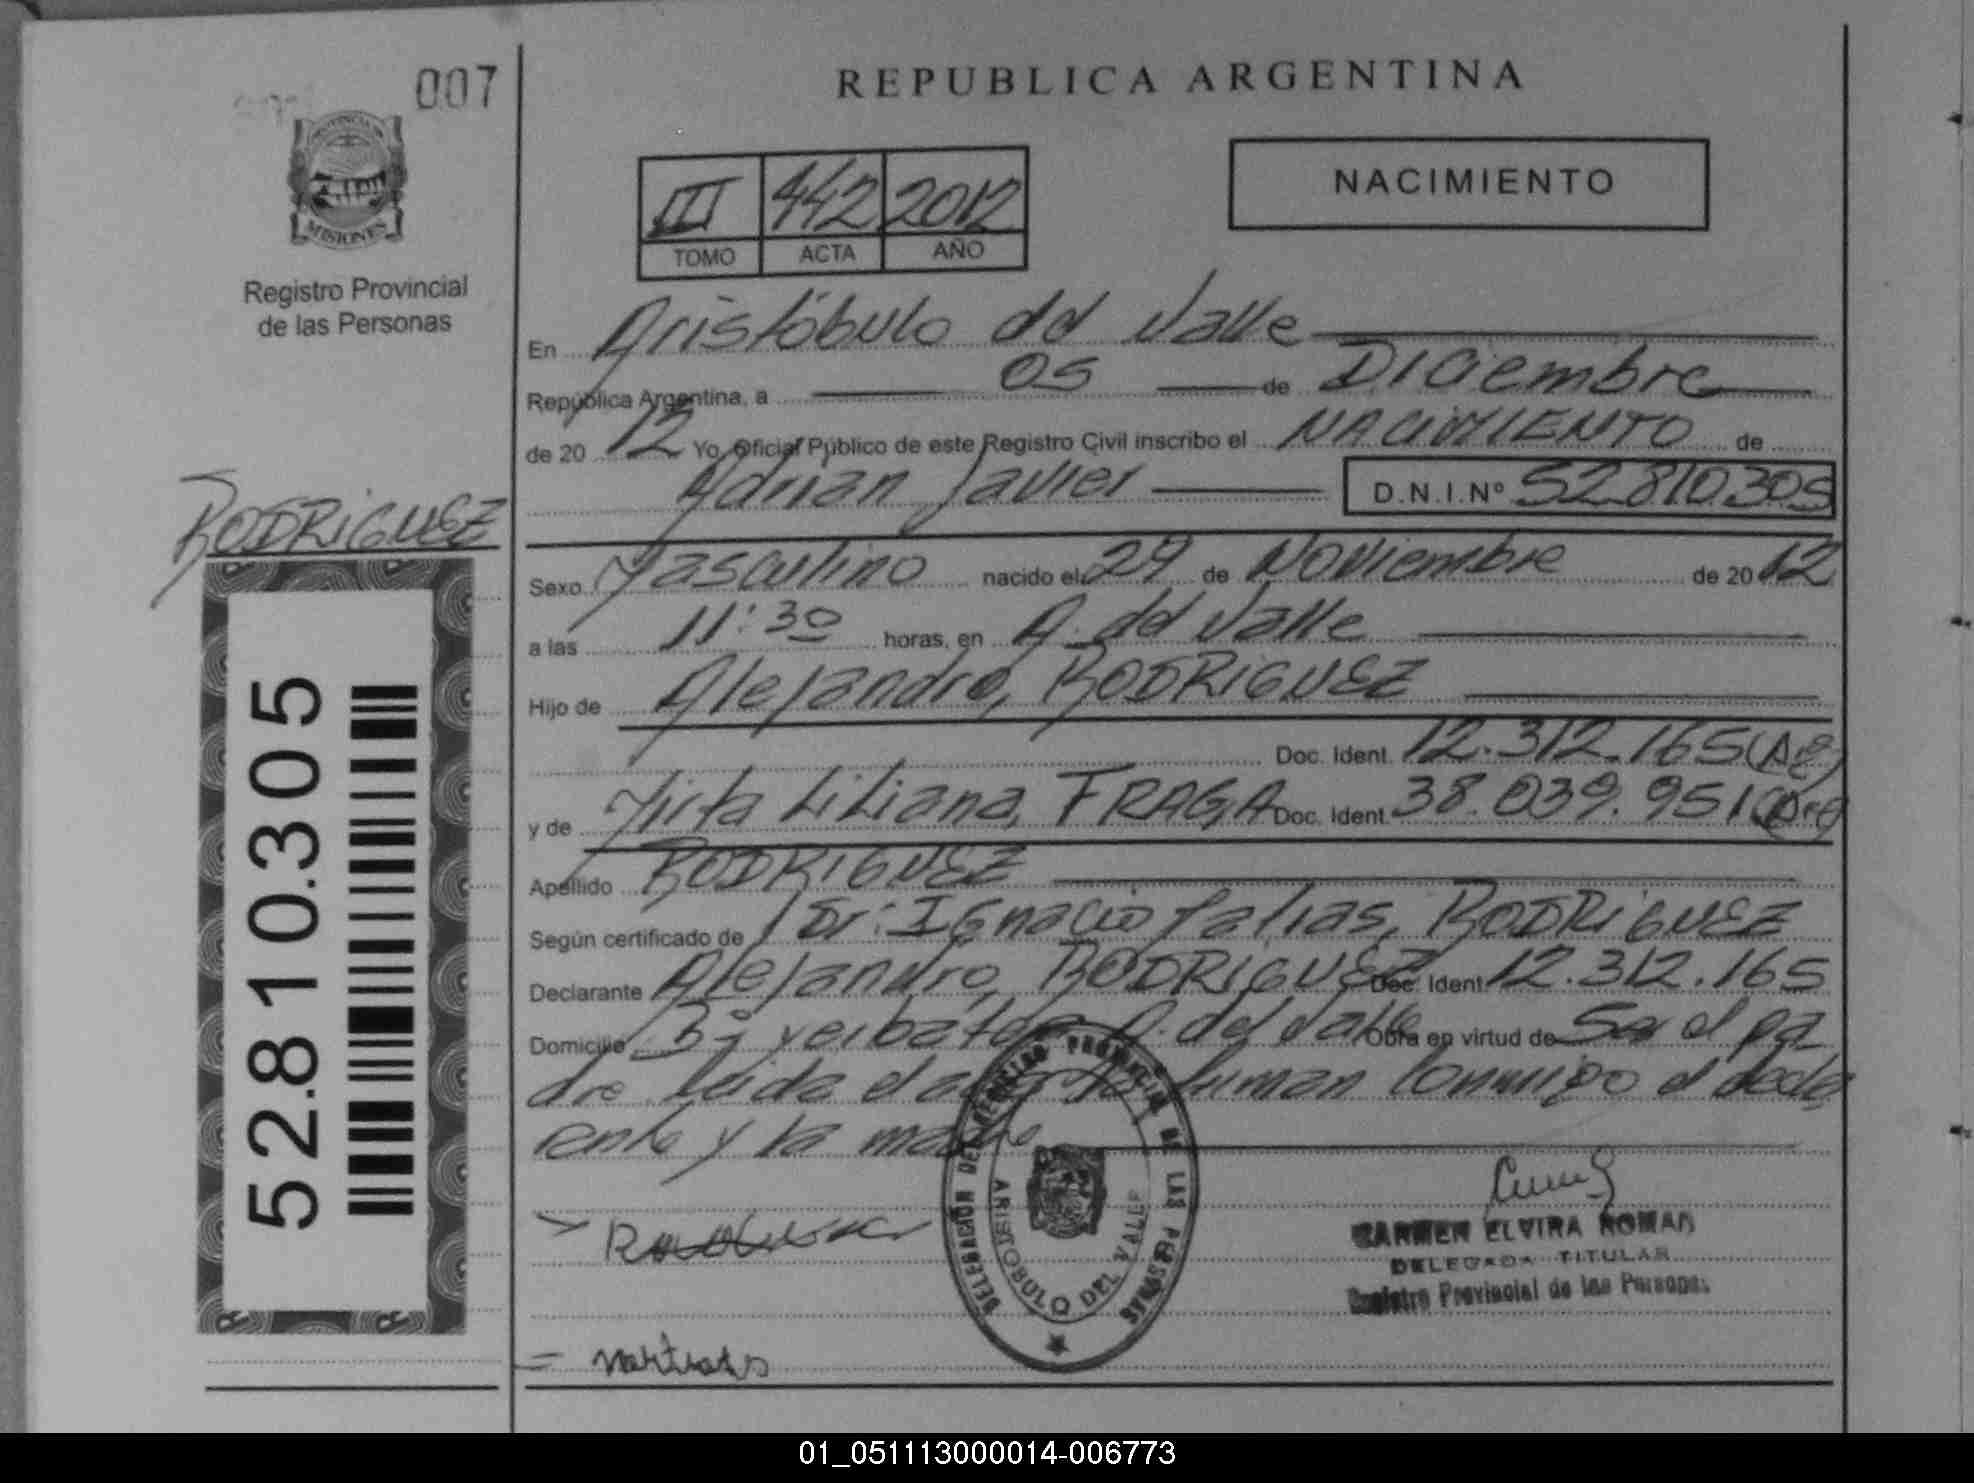 007
REPUBLICA ARGENTINA
PROVINCIA DE
MISIONES
Registro Provincial
de las Personas
III 442 2012
TOMO ACTA AÑO
NACIMIENTO
En Aristóbulo del Valle
República Argentina, a 05 de Diciembre
de 2012 Yo, Oficial Público de este Registro Civil inscribo el NACIMIENTO de
Adrian Javier D.N.I.Nº 52810305
RODRIGUEZ
Sexo Masculino nacido el 29 de Noviembre de 2012
a las 11:30 horas, en A. del Valle
Hijo de Alejandro, RODRIGUEZ
Doc. Ident. 12.312.165 (Ag)
y de Mirta Liliana, FRAGA Doc. Ident. 38.039.951 (Arg)
Apellido RODRIGUEZ
Según certificado de Dr: Ignacio Falias, RODRIGUEZ
Declarante Alejandro, RODRIGUEZ Doc. Ident. 12.312.165
Domicilio Bº yerbatero A. del Valle Obra en virtud de Ser el pa-
dre Leida el acta firman Conmigo el decla
ente y la madre
52.810.305
DELEGACIÓN DEL REGISTRO PROVINCIAL DE LAS PERSONAS
ARISTOBULO DEL VALLE
CARMEN ELVIRA ROMAN
DELEGADA TITULAR
Registro Provincial de las Personas
01_051113000014-006773